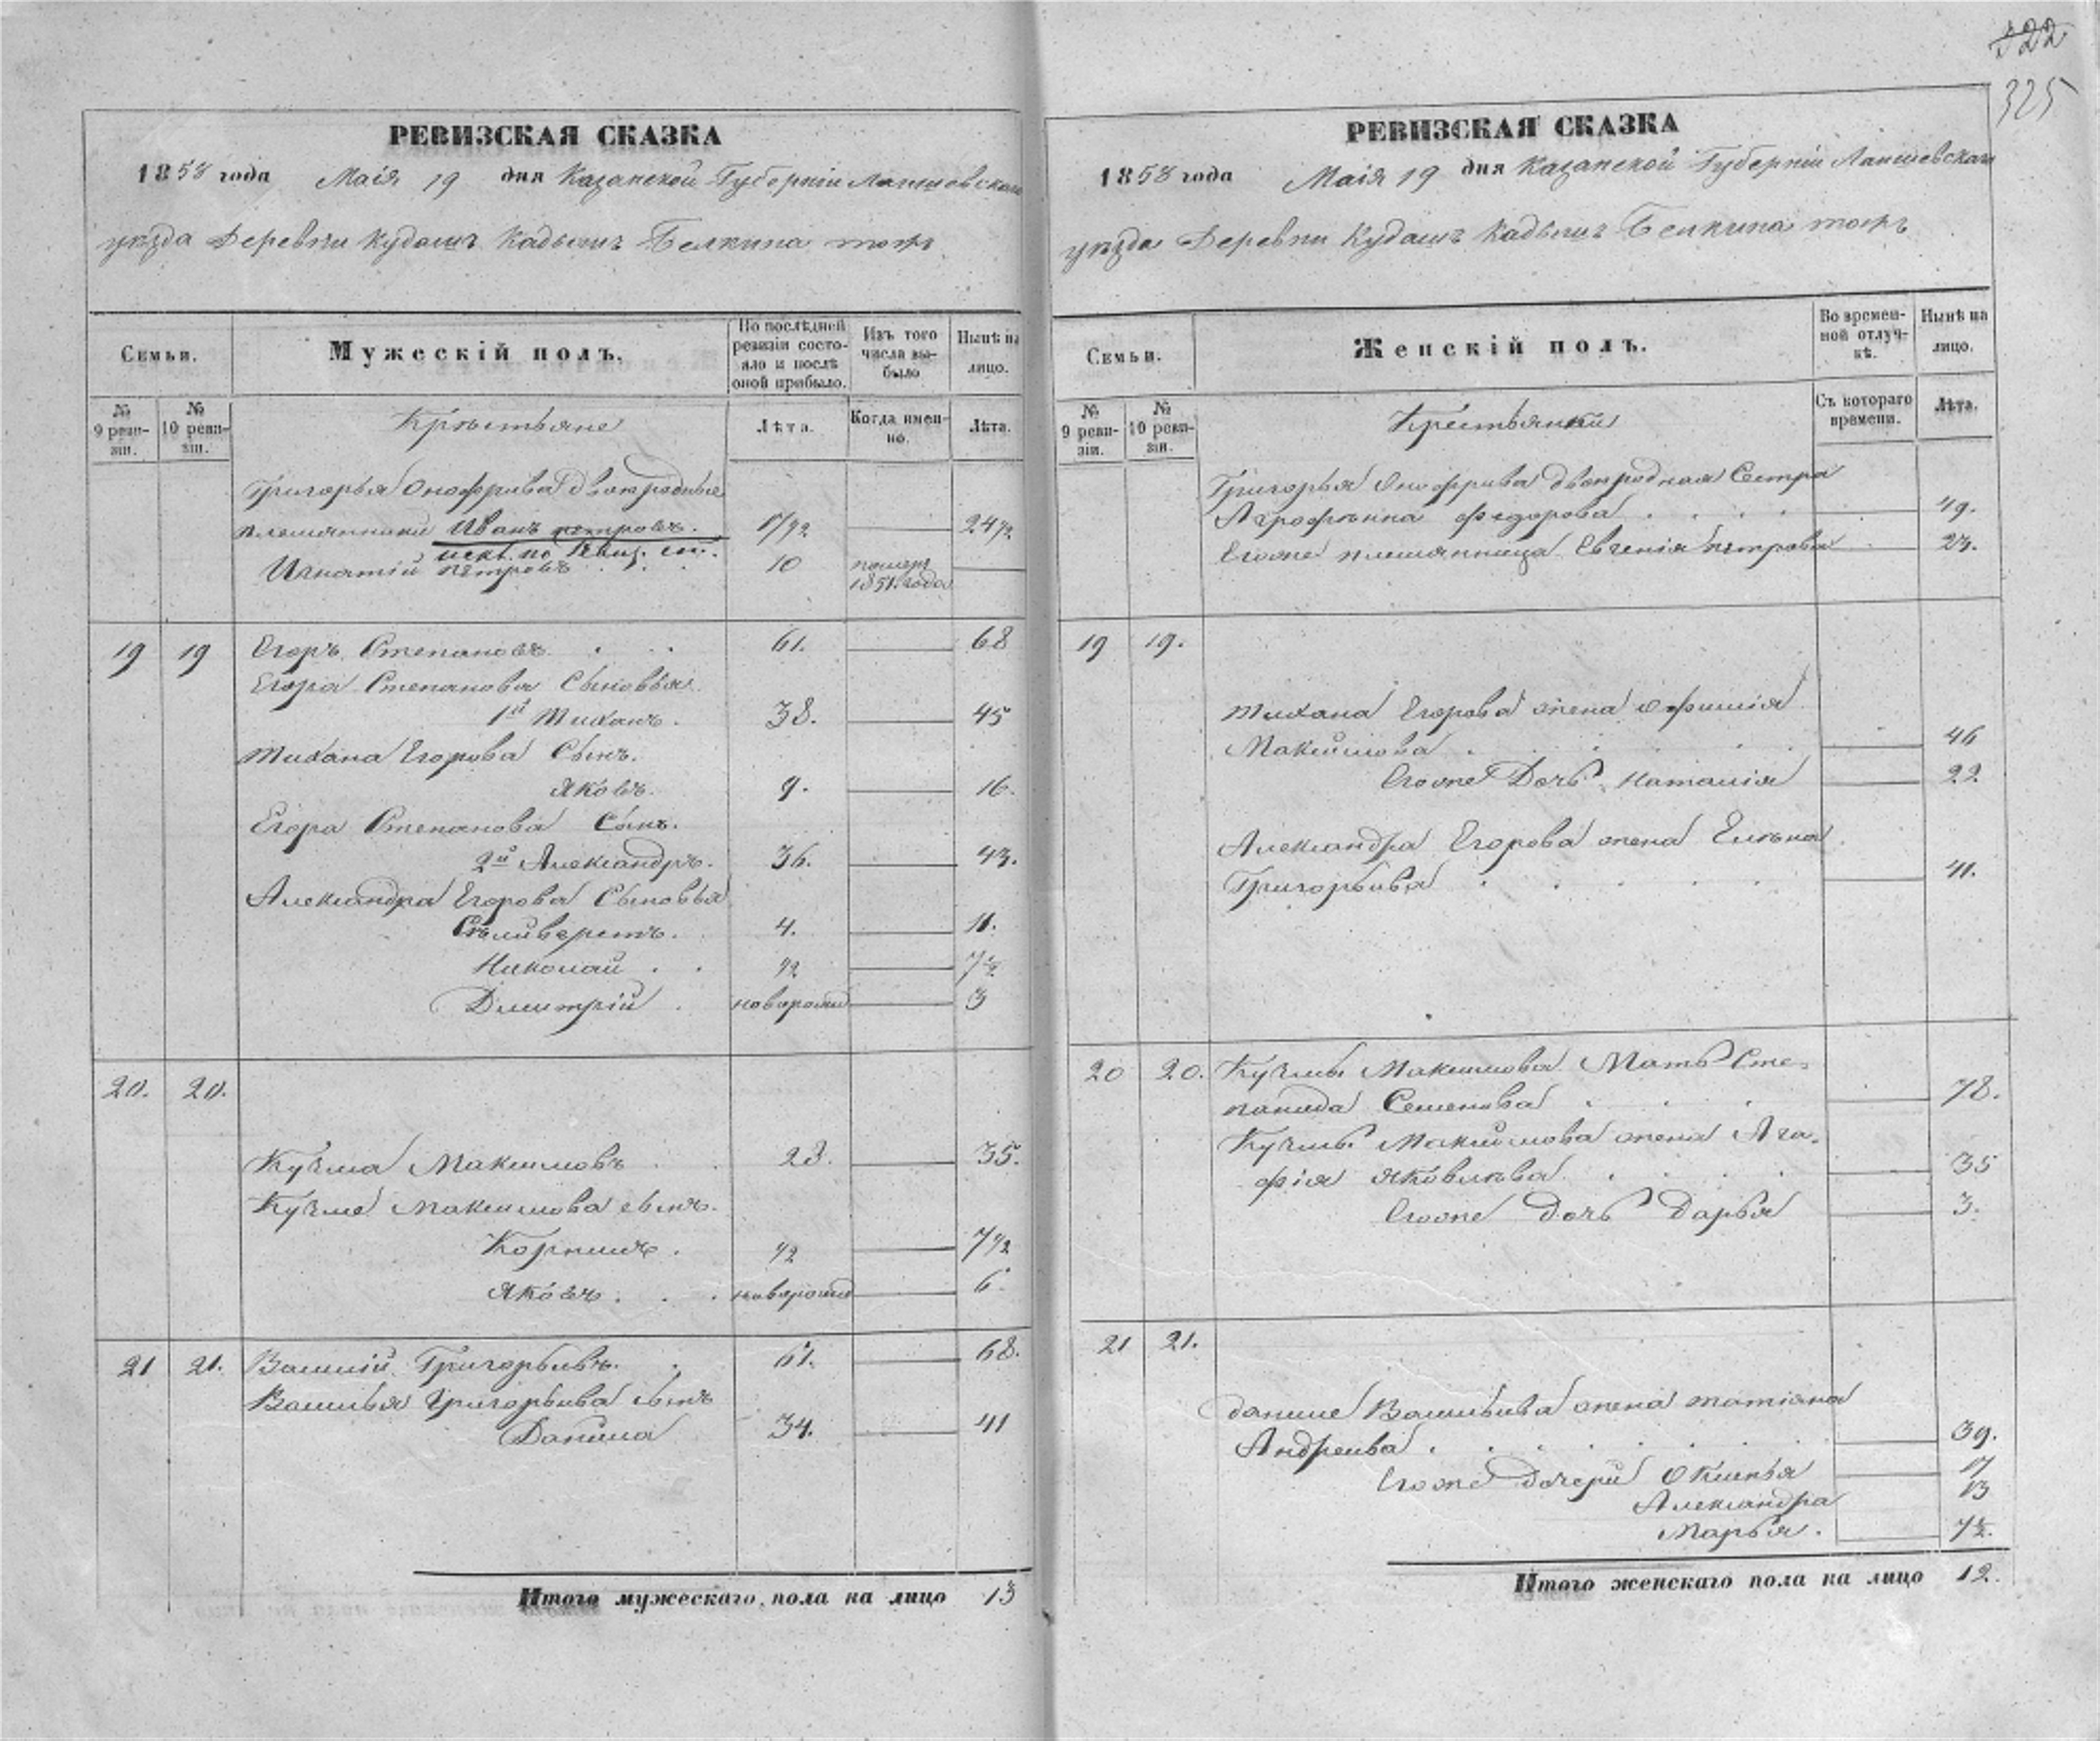 322
325
РЕВИЗСКАЯ СКАЗКА
1858 года Маія 19 дня Казанской Губерніи Лаишевскаго
уѣзда Деревни Кудашъ Кадышъ Белкина тожъ
Семьи.
Мужескій полъ.
По послѣдней ревизіи состояло и послѣ оной прибыло.
Изъ того числа выбыло
Нынѣ на лицо.
№ 9 ревизіи.
№ 10 ревизіи.
Крестьяне
Лѣта.
Когда именно.
Лѣта.
Григорья Онофріева двоюродные
племянники Иванъ Петровъ. 17/2 24 1/2
Игнатій Петровъ 10 померъ
1851. года
19 19 Егоръ Степановъ 61. 68
Егора Степанова Сыновья
1й Тиханъ. 38. 45
Тихана Егорова Сынъ.
Яковъ. 9. 16.
Егора Степанова Сынъ.
2й Александръ. 36. 43.
Александра Егорова Сыновья
Селиверстъ. 4. 11.
Николай 1/2 7 1/2
Дмитрій новорожд 3
20. 20.
Кузма Максимовъ 28. 35.
Кузме Максимова сынъ.
Корнилъ. 1/2 7 1/2
Яковъ. новорожд 6
21 21. Василій Григорьевъ. 61. 68.
Василья Григорьева сынъ
Данила 34. 41
Итого мужескаго пола на лицо 13
РЕВИЗСКАЯ СКАЗКА
1858 года Маія 19 дня Казанской Губерніи Лаишевскаго
уѣзда Деревни Кудашъ Кадышъ Белкина тожъ
Семьи.
Женскій полъ.
Во временной отлучкѣ.
Нынѣ на лицо.
№ 9 ревизіи.
№ 10 ревизіи.
Крестьянки
Съ котораго времени.
Лѣта.
Григорья Онофріева двоюродная Сестра
Агрофѣнна Федорова 49.
Егоже племянница Евгенія Петрова 23.
19 19.
Тихана Егорова жена Офимія
Максимова 46
Егоже Дочь Наталія 22
Александра Егорова жена Елѣна
Григорьева 41.
20 20. Кузмы Максимова Мать Сте-
панида Семенова 78.
Кузмы Максимова жена Ага-
фія Яковлева 35
Егоже дочь Дарья 3.
21 21.
Даниле Васильева жена Татіана
Андреева 39.
Егоже дочери Окинья 17
Александра 13
Марья. 7 1/2.
Итого женскаго пола на лицо 12.